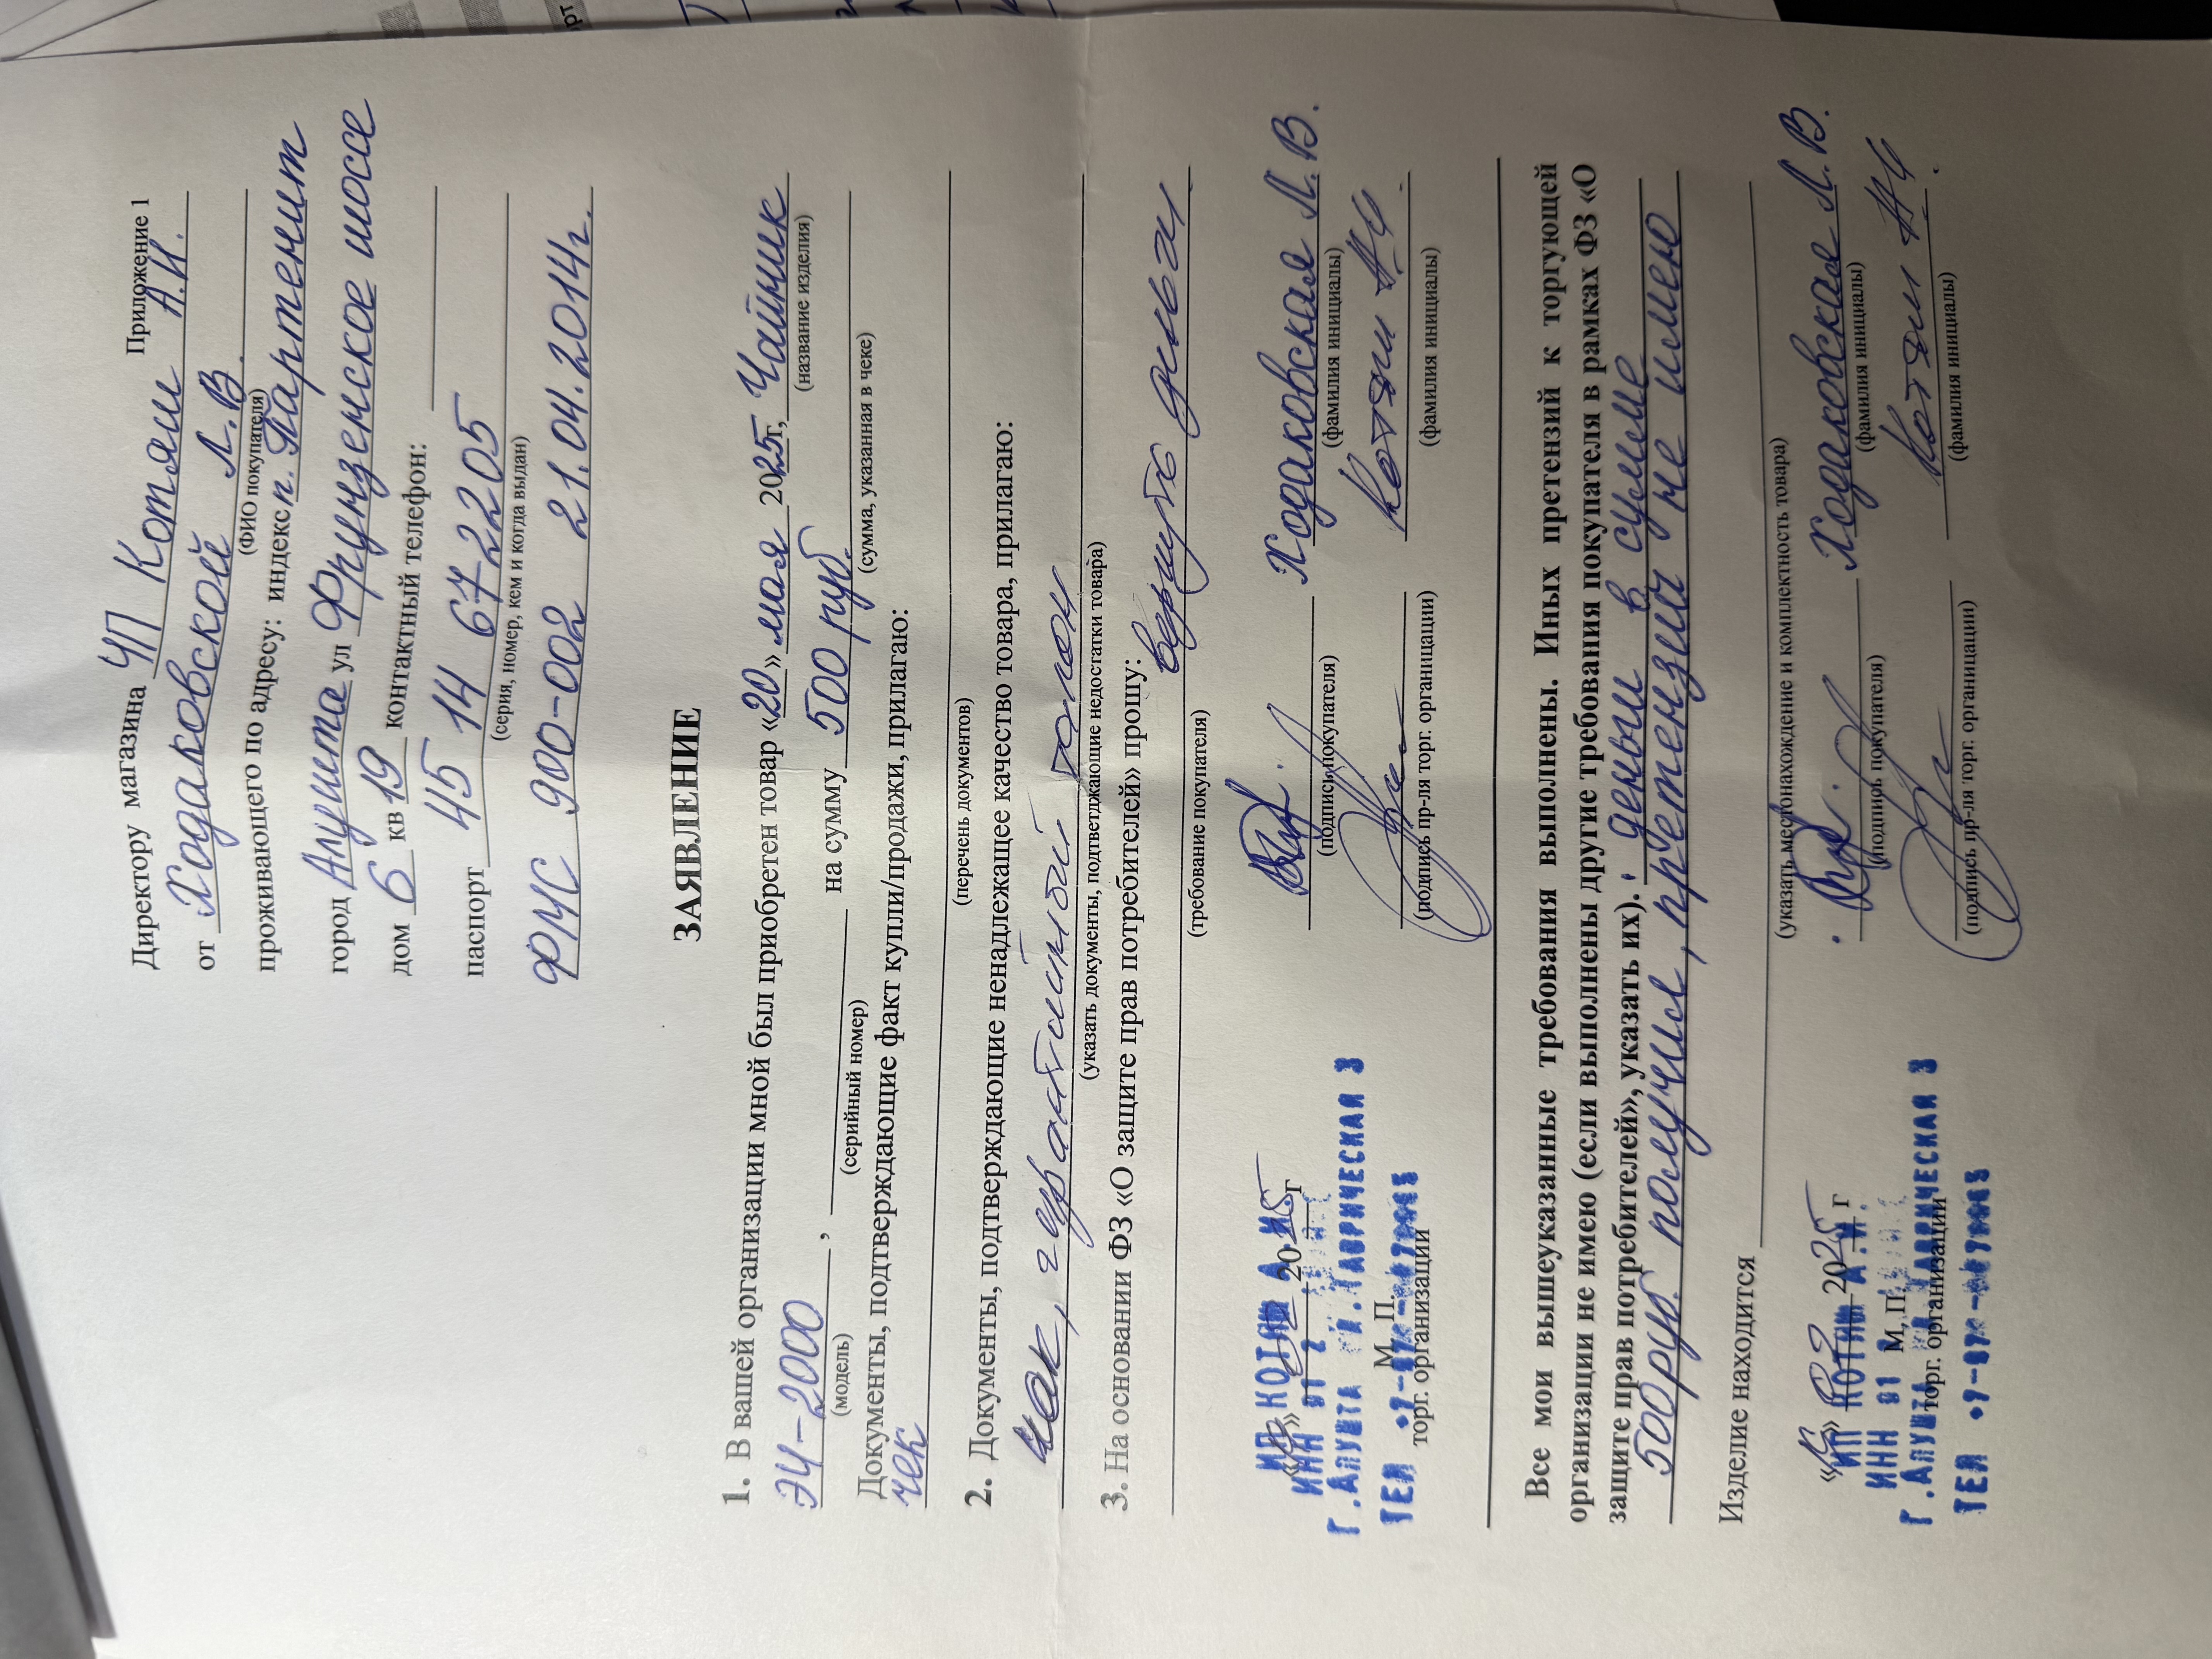 Приложение 1
Директору магазина ЧП Котяш А.И.
от Ходаковской Л.В.
(ФИО покупателя)
проживающего по адресу: индекс п. Партенит
город Алушта ул Фрунзенское шоссе
дом 6 кв 19 контактный телефон:
паспорт 45 14 672205
(серия, номер, кем и когда выдан)
ФМС 900-002 21.04.2014г.
ЗАЯВЛЕНИЕ
1. В вашей организации мной был приобретен товар «20» мая 2025г, Чайник
(название изделия)
ЭЧ-2000, на сумму 500 руб.
(модель) (серийный номер) (сумма, указанная в чеке)
Документы, подтверждающие факт купли/продажи, прилагаю:
чек
(перечень документов)
2. Документы, подтверждающие ненадлежащее качество товара, прилагаю:
чек, гарантийный талон
(указать документы, подтверждающие недостатки товара)
3. На основании ФЗ «О защите прав потребителей» прошу:
вернуть деньги
(требование покупателя)
2025г Ходаковская Л.В.
(подпись покупателя) (фамилия инициалы)
Котяш
(подпись пр-ля торг. организации) (фамилия инициалы)
ИП КОТЯШ А.И.
ИНН 91
Г.АЛУШТА ТАВРИЧЕСКАЯ 3
М. П.
ТЕЛ +7-97
торг. организации
Все мои вышеуказанные требования выполнены. Иных претензий к торгующей
организации не имею (если выполнены другие требования покупателя в рамках ФЗ «О
защите прав потребителей», указать их). деньги в сумме
500 руб. получила, претензий не имею
Изделие находится
(указать местонахождение и комплектность товара)
2025 г Ходаковская Л.В.
(подпись покупателя) (фамилия инициалы)
Котяш
(подпись пр-ля торг. организации) (фамилия инициалы)
ИП КОТЯШ А.И.
ИНН 91 М. П.
Г.АЛУШТА ТАВРИЧЕСКАЯ 3
торг. организации
ТЕЛ +7-97